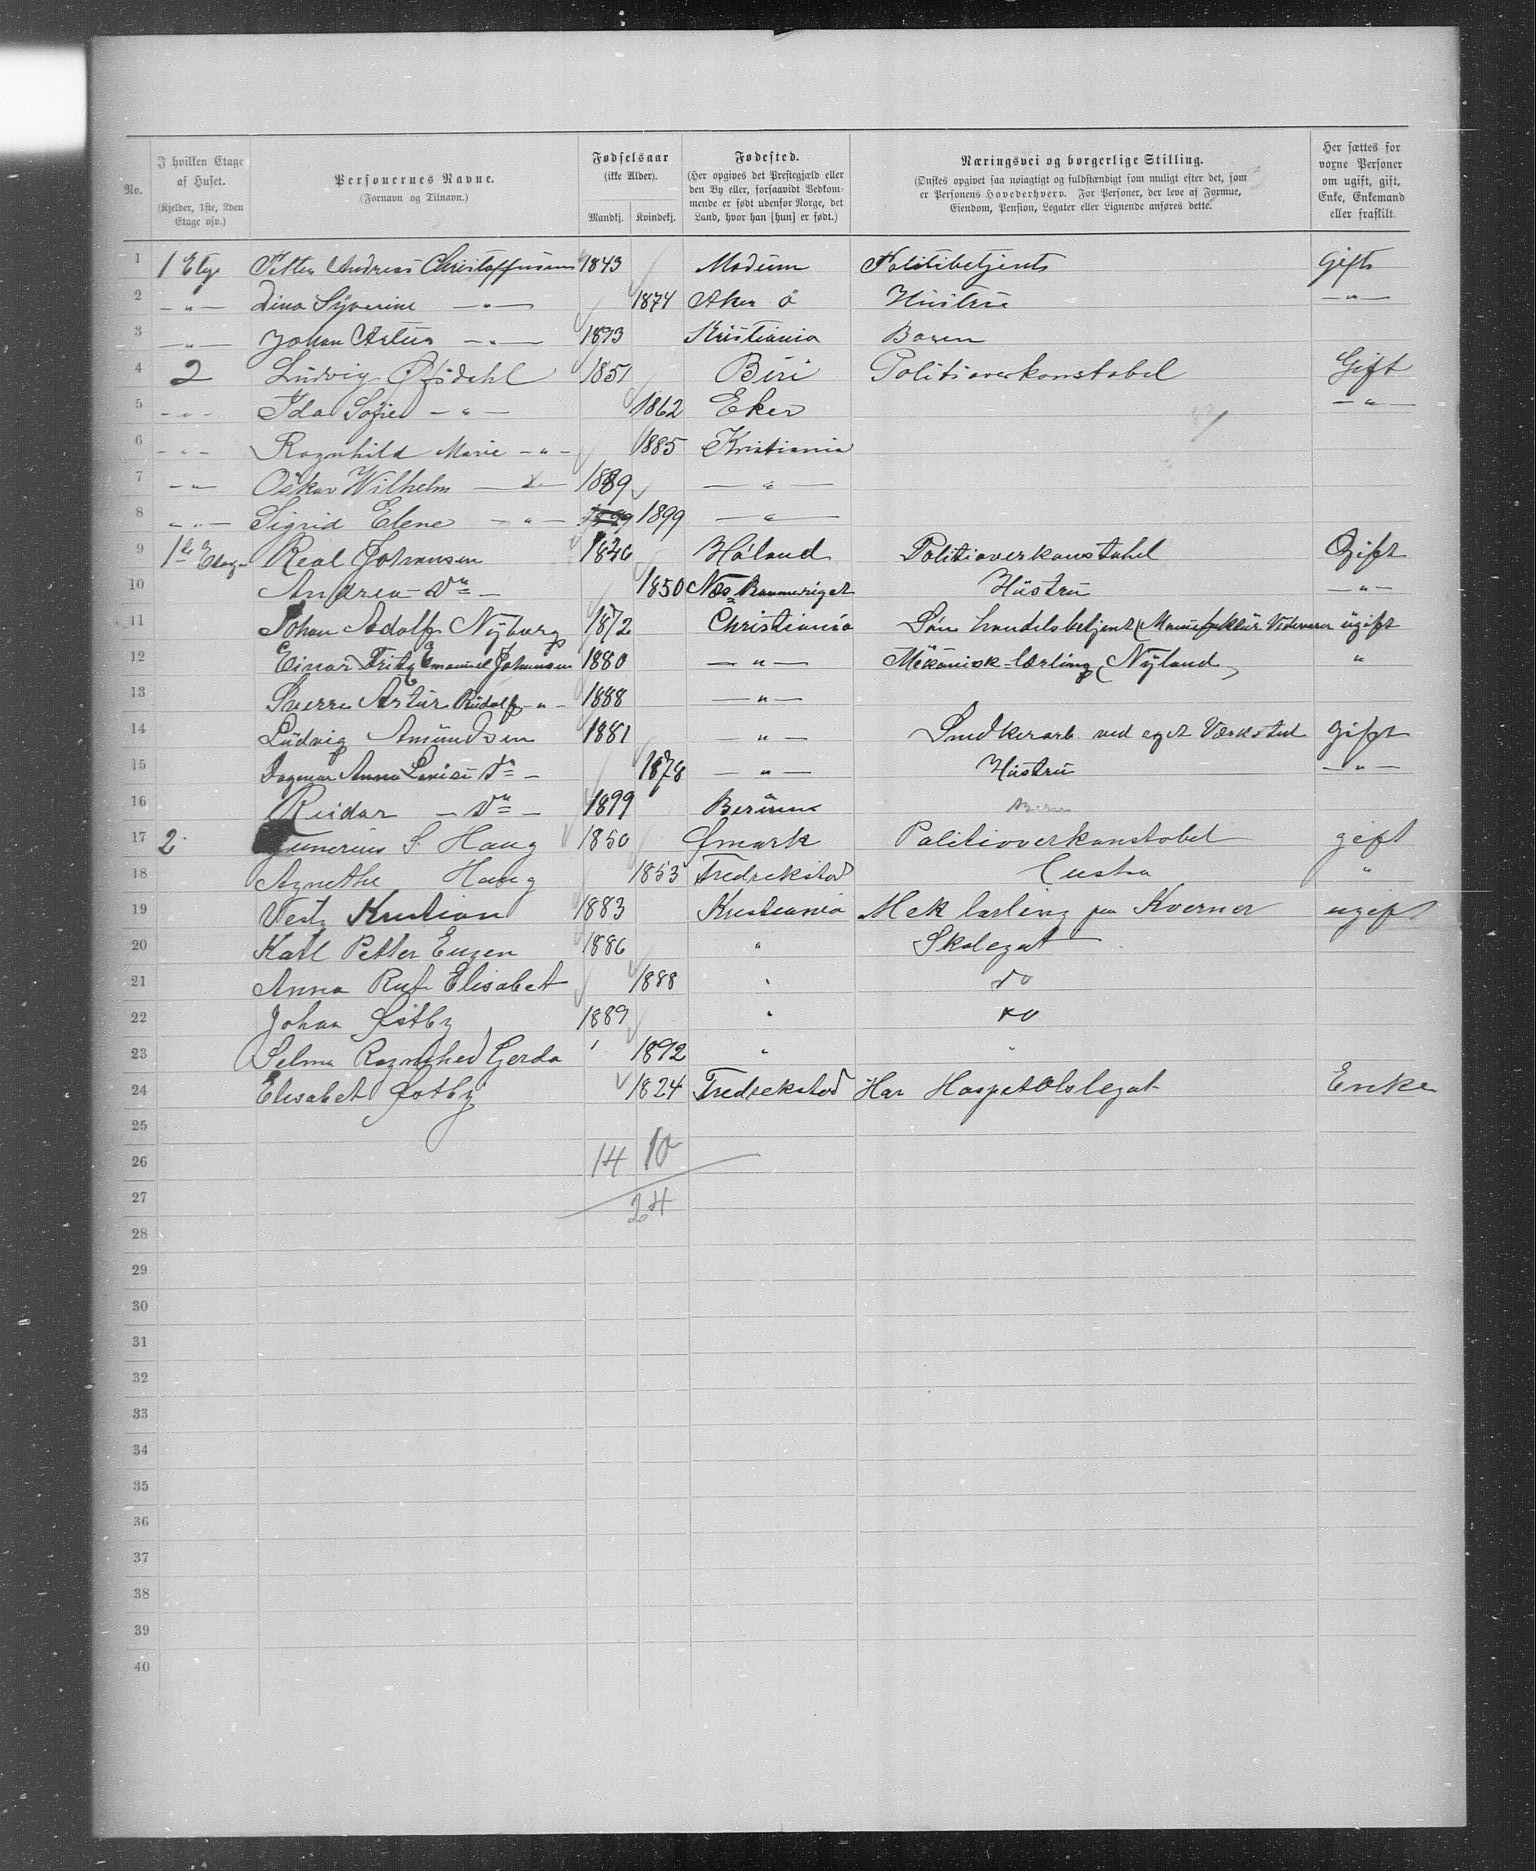 No.
I hvilken Etage af Huset.
(Kjelder, 1ste, 2den Etage osv.)
Personernes Navne.
(Fornavn og Tilnavn.)
Fødselsaar
(ikke Alder).
Mandkj. Kvindekj.
Fødested.
(Her opgives det Prestegjæld eller den By eller, forsaavidt Vedkommende er født udenfor Norge, det Land, hvor han [hun] er født.)
Næringsvei og borgerlige Stilling.
(Ønskes opgivet saa nøiagtigt og fuldstændigt som muligt efter det, som er Personens Hovederhverv. For Personer, der leve af Formue, Eiendom, Pension, Legater eller Lignende anføres dette.
Her sættes for voxne Personer om ugift, gift, Enke, Enkemand eller fraskilt.
1 1 Etge Petter Andreas Christoffersen 1843 Modum Politibetjent Gift
2 -„- Lina Syverine -„- 1874 Aker ö Hustru -„-
3 -„- Johan Artur -„- 1893 Kristiania Baren
4 2 Ludvig Øfsdahl 1851 Biri Politioverkonstabel Gift
5 -„- Ida Sofie -„- 1862 Eker -„-
6 -„- Ragnhild Marie -„- 1885 Kristiania
7 -„- Oskar Wilhelm -„- 1889 -„-
8 -„- Sigrid Elene -„- 1899 -„-
9 1ste Etage Real Johannsen 1846 Høland Politioverkonstabel Gift
10 Andrea - Do - 1850 Næs Romerriget Hustru -„-
11 Johan Adolf Nyburg 1872 Christiania Søn handelsbetjent (Manufaktur ugift
12 Einar Fritz Emanuel Johannsen 1880 -„- Mekanisk-lærling (Nyland) „
13 Sverre Artur Rudolf -„- 1888 -„-
14 Ludvig Amundsen 1881 -„- Snedkerarb. ved eget Værksted gift
15 Dagmar Anna Lovise Do - 1878 -„- Hustru -„-
16 Reidar - Do - 1899 Berum Barn
17 2 Gunerius S. Haug 1850 Ømark Politioverkonstabel gift
18 Agnethe Haug 1853 Fredrekstad Hustru „
19 Kristian 1883 Kristiania Mek lærling paa Kverner ugift
20 Karl Petter Eugen 1886 „ Skolegut
21 Anna Rut Elisabet 1888 „ do
22 Johan Østby 1889 „ do
23 Selma Ragnhed Gerda 1892 „ „
24 Elisabet Østby 1824 Fredrekstad Har Hospitalslegat Enke
25
26 14 10
27 24
28
29
30
31
32
33
34
35
36
37
38
39
40